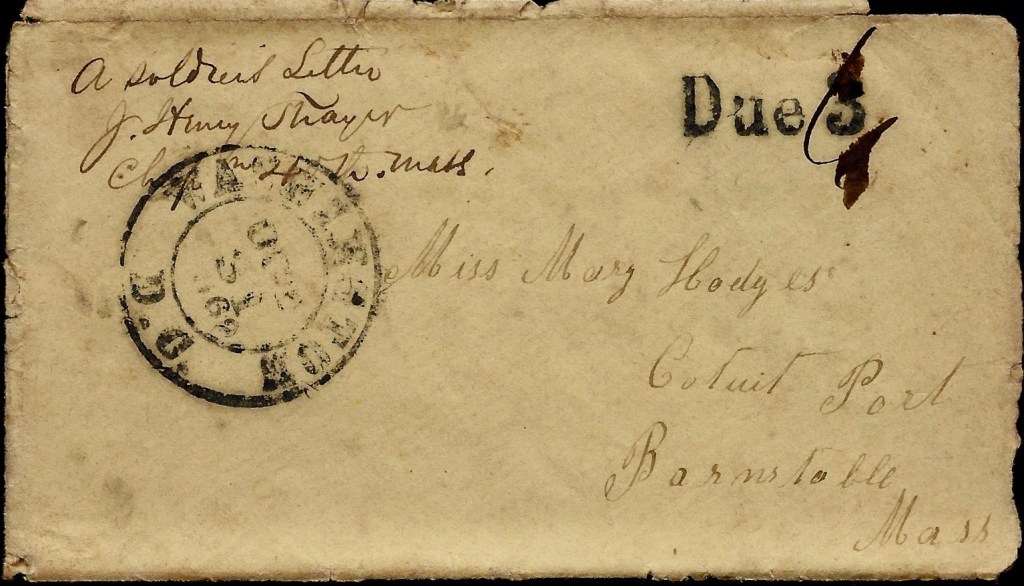 A soldiers Letter
J. Henry Thayer
Chapn th. Mass.
Due 3
WASHINGTON D.C.
DEC
31
Miss Mary Hodges
Cotuit Port
Barnstable
Mass